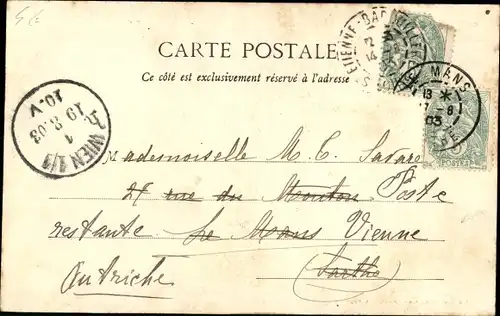 CARTE POSTALE
Ce côté est exclusivement réservé à l'adresse
ETIENNE-
MANS
13 *
17-8
03
WIEN 1/1
1
19.8.03
10.V
Mademoiselle M. C. Savare
27 rue du Mouton Poste
restante Le Mans Vienne
Autriche (Sarthe)